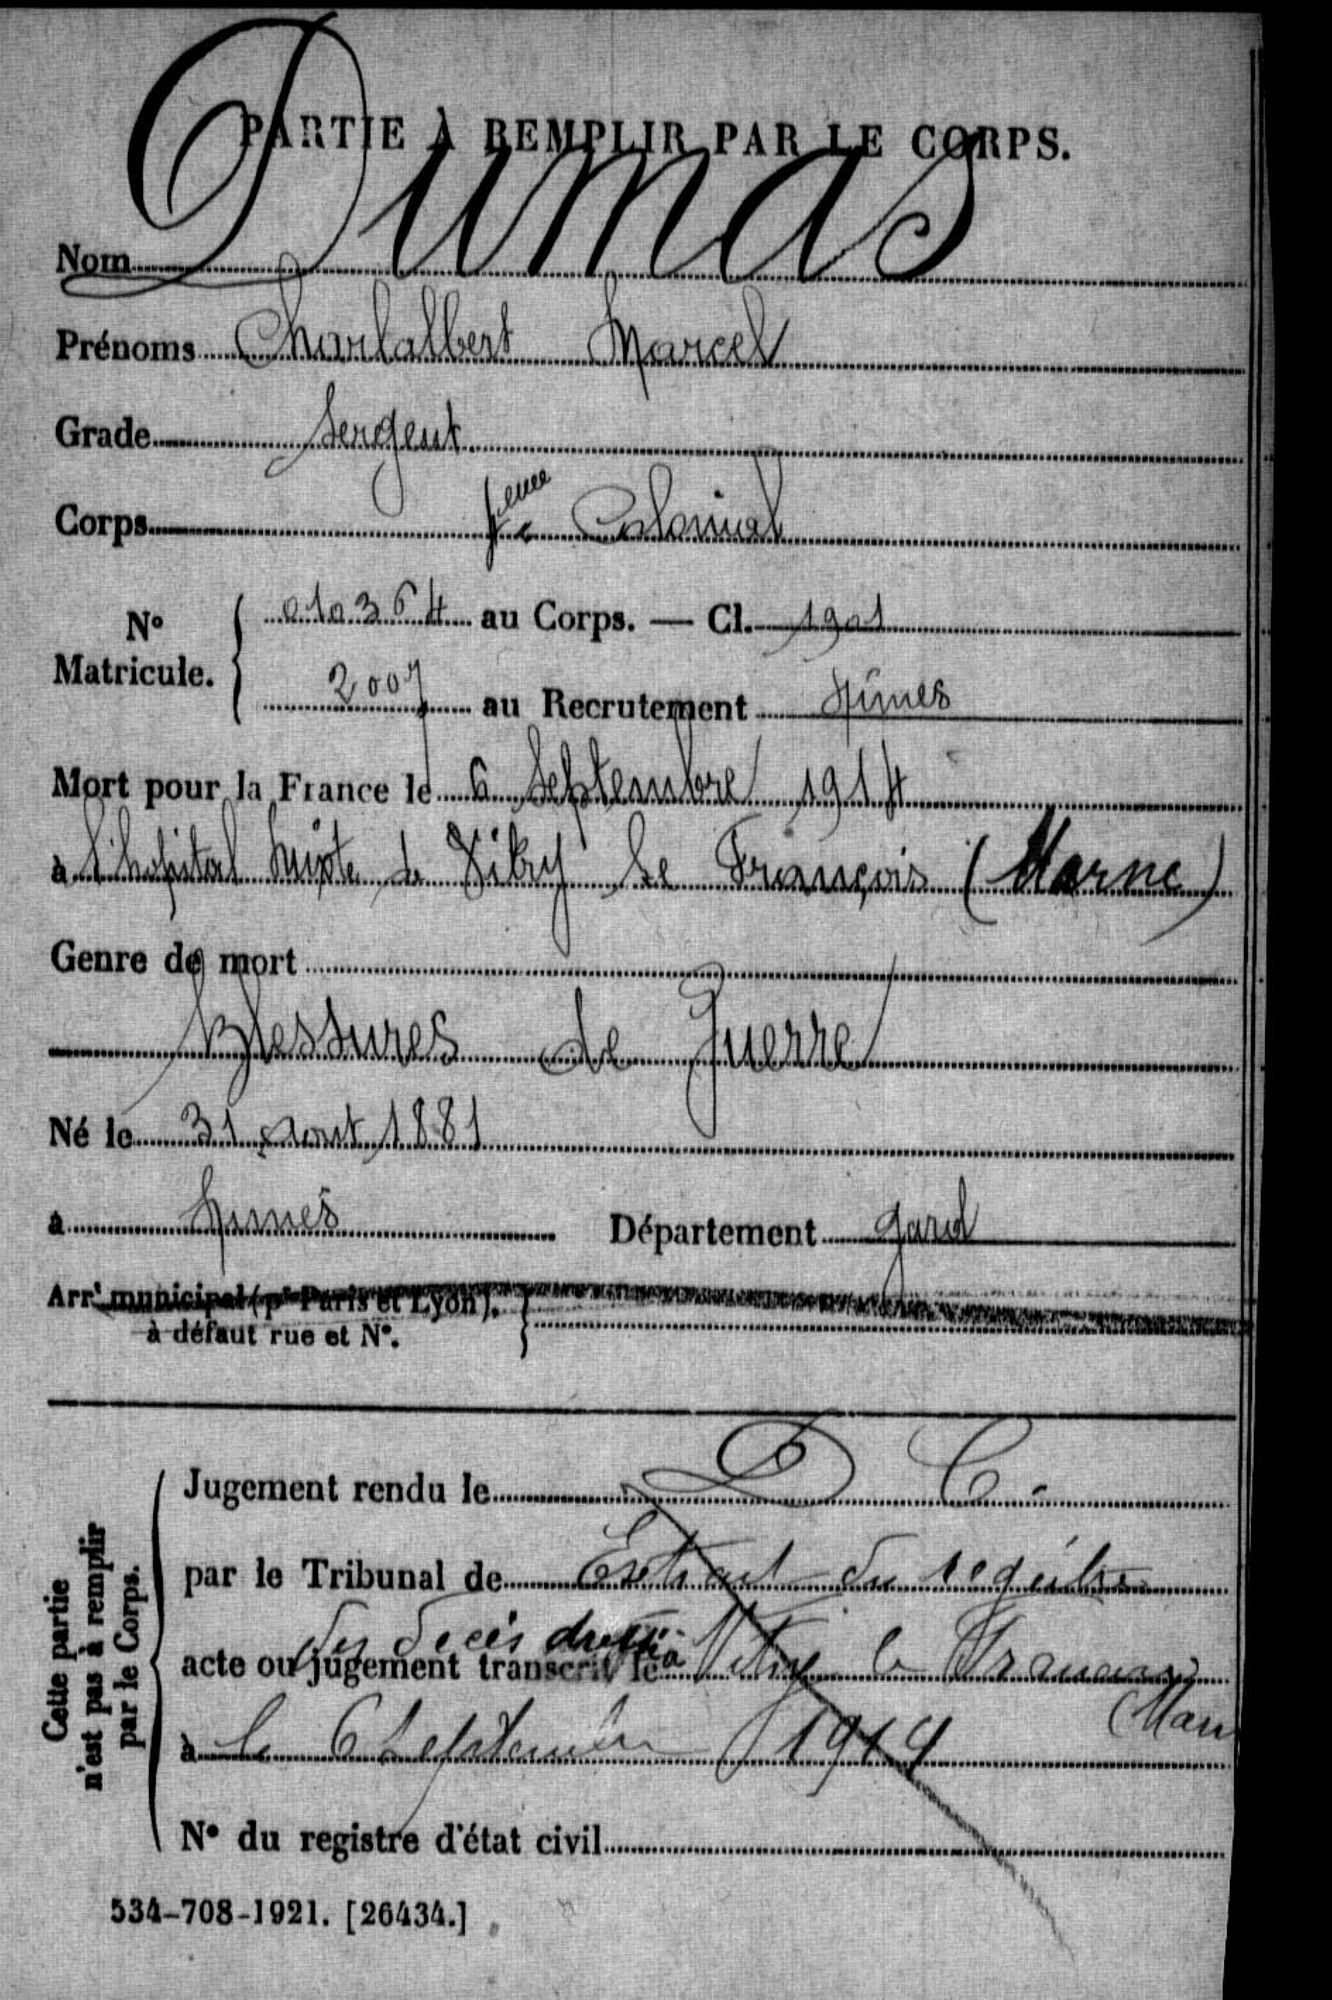 PARTIE À REMPLIR PAR LE CORPS.
Nom Dumas
Prénoms Charlalbert Marcel
Grade Sergent
Corps Colonial
N° Matricule. 010364 au Corps. — Cl. 1901
2007 au Recrutement Nîmes
Mort pour la France le 6 Septembre 1914
à l'hopital mixte de Vitry le François (Marne)
Genre de mort
Blessures de guerre
Né le 31 Aout 1881
à Nimes Département Gard
Arrt municipal (pr Paris et Lyon),
à défaut rue et N°.
Cette partie
n'est pas à remplir
par le Corps.
Jugement rendu le D C.
par le Tribunal de Extrait du registre
des décès dressé à Vitry le François
acte ou jugement transcrit le
(Marn
à le 6 Septembre 1914
N° du registre d'état civil
534-708-1921. [26434.]